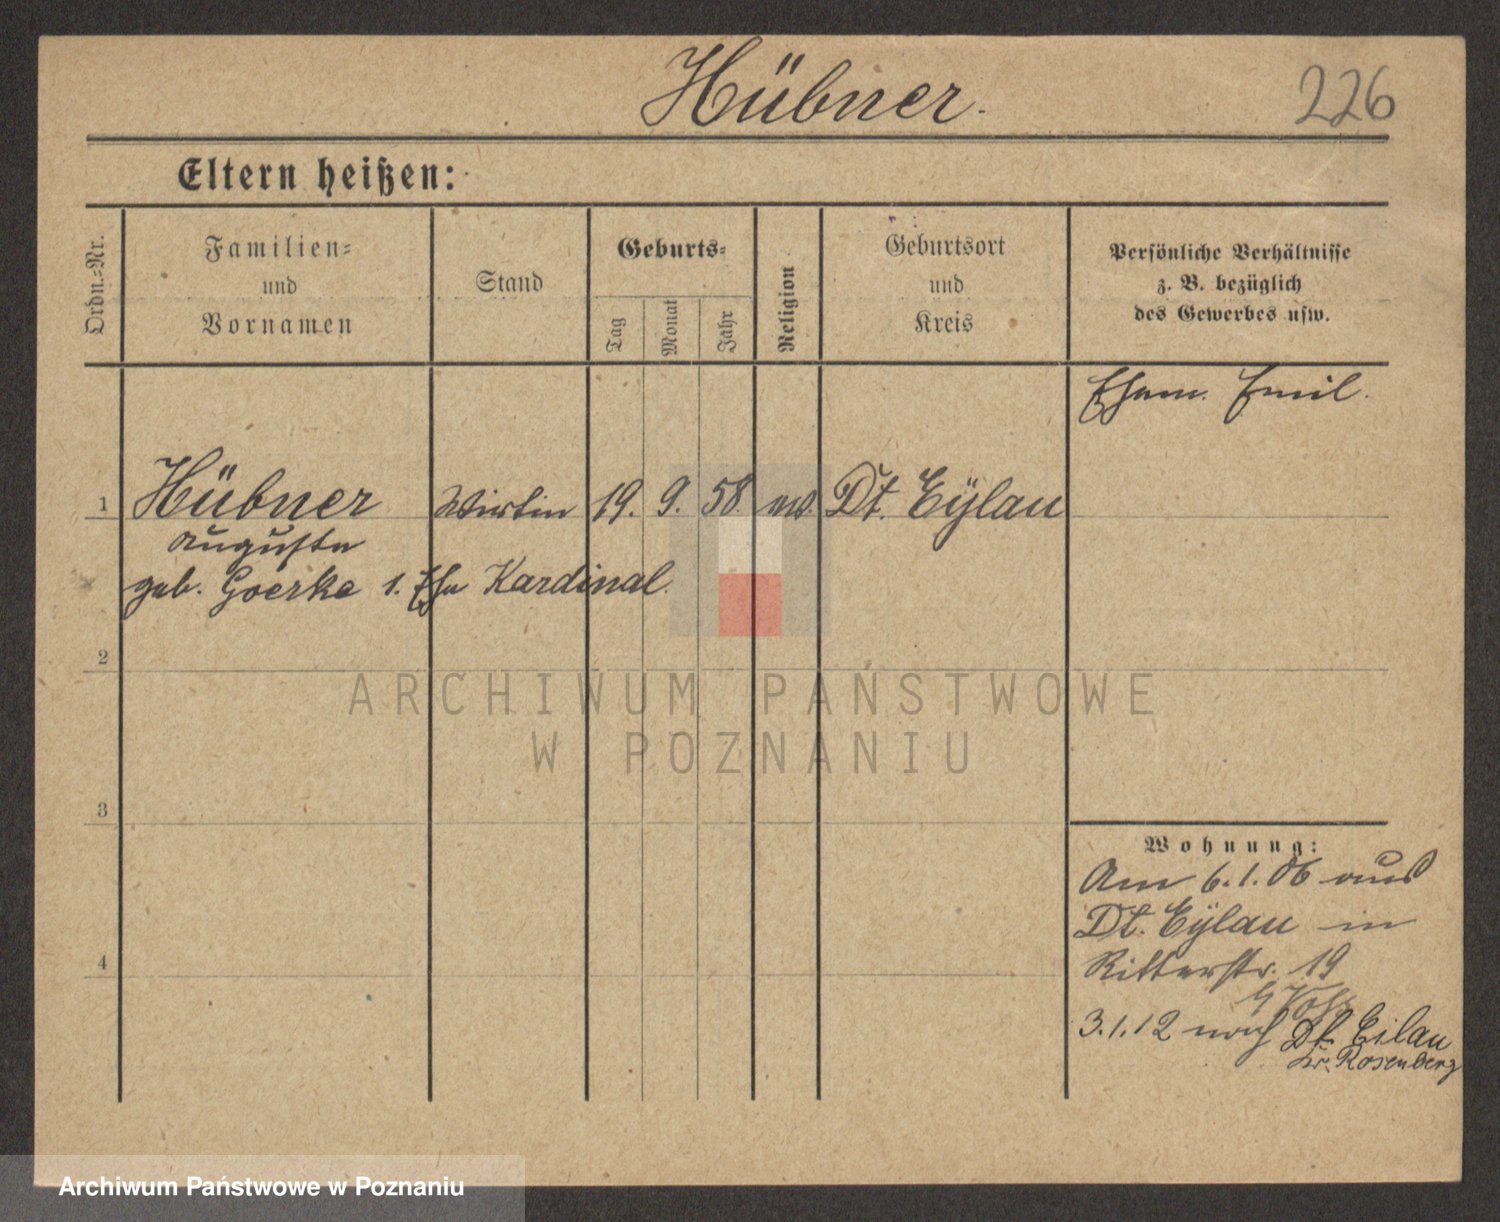 Hübner.
226
Eltern heißen:
Ordn.=Nr.
Familien=
und
Vornamen
Stand
Geburts=
Tag
Monat
Jahr
Religion
Geburtsort
und
Kreis
Persönliche Verhältnisse
z. B. bezüglich
des Gewerbes usw.
Ehem. Emil.
1
Hübner
Wirtin
19.
9.
58
ev.
Dt. Eylau
Auguste
geb. Goerke 1. Ehe Kardinal.
2
ARCHIWUM PAŃSTWOWE
W POZNANIU
3
Wohnung:
Am 6.1.06 aus
Dt. Eylau in
Ritterstr. 19
4
3.1.12 nach Dt. Eilau
Kr. Rosenberg
Archiwum Państwowe w Poznaniu